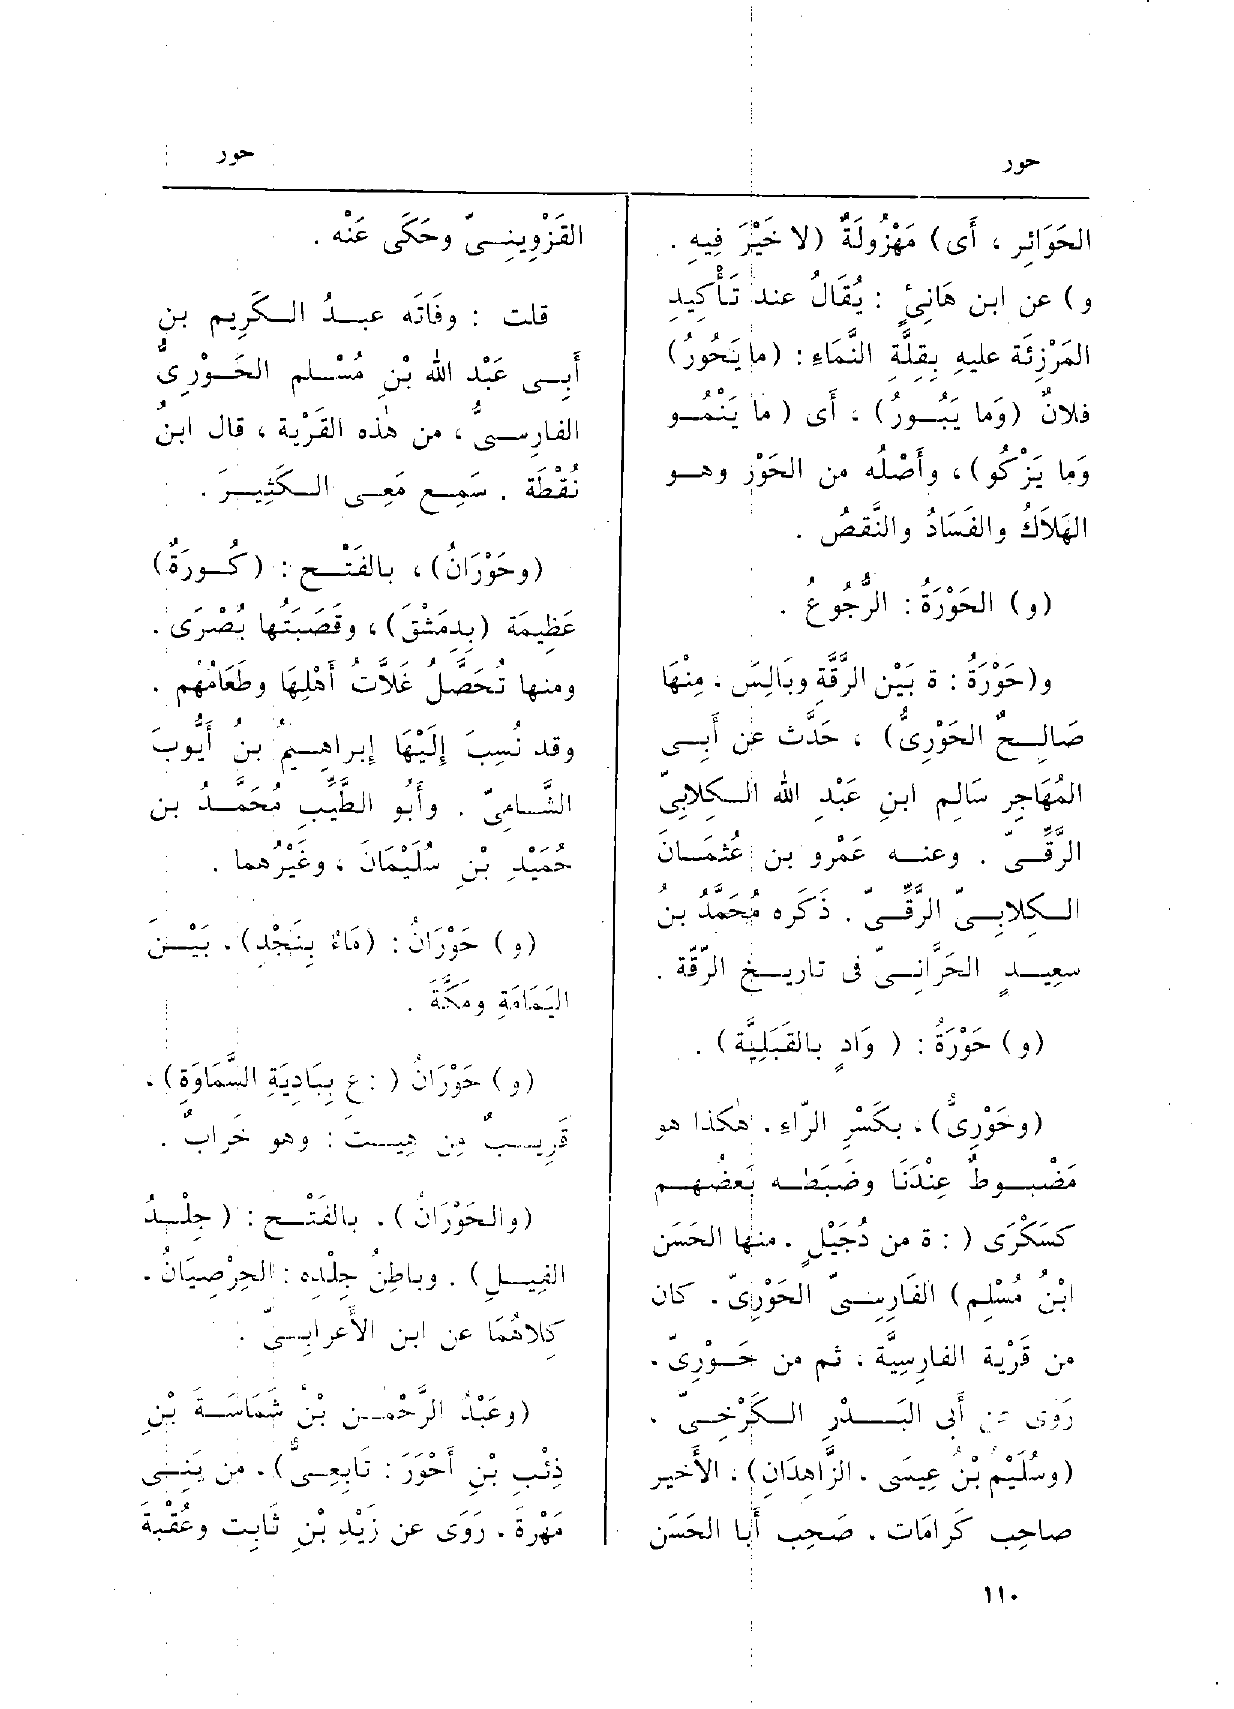 حور
حور
الحَوَائِر ، أَى) مَهْزُولَةٌ (لا خَيْرَ فِيهِ .
و) عن ابن هَانِئٍ : يُقَالُ عند تَأْكِيدِ
المَرْزِئَة عليهِ بِقِلَّةِ النَّمَاءِ : (ما يَحُورُ)
فلانٌ (وَما يَبُــورُ) ، أَى ( ما يَنْمُــو
وَما يَزْكُو)، وأَصْلُه من الحَوْر وهــو
الهَلاَكُ والفَسَادُ والنَّقصُ .
(و) الحَوْرَةُ : الرُّجُوعُ .
و(حَوْرَةُ : ة بَيْن الرَّقَّةِ وبَالِسَ . مِنْهَا
صَالِــحٌ الحَوْرِىُّ) ، حَدَّث عن أَبِــى
المُهَاجِرِ سَالِم ابنِ عَبْدِ الله الــكِلابِىّ
الرَّقِّــىّ . وعنــه عَمْرو بن عُثمَــانَ
الــكِلابِــىّ الرَّقِّــىّ . ذَكَره مُحَمَّدُ بن
سعِيــدٍ الحَرَّانِــىّ فى تاريــخ الرَّقّة .
(و) حَوْرَةُ : ( وَادٍ بالقَبَلِيَّة ) .
(وحَوْرِىُّ)، بكَسْرِ الرّاءِ. هٰكذا هو
مَضْبــوطٌ عِنْدَنَا وضَبَطــه بَعضُهــم
كسَكْرَى ( : ة من دُجَيْلٍ . منها الحَسَن
ابْنُ مُسْلِم) الفَارِســىّ الحَوْرِىّ. كان
من قَرْية الفارِسِيَّة ، ثم من حَــوْرِىّ .
رَوَى عن أَبى البَــدْرِ الــكَرْخِــىّ .
(وسُلَيْمُ بْنُ عِيسَى . الزَّاهِدَانِ) . الأَخير
صاحِب كَرامَات . صَحِب أَبا الحَسَن
القَزْوِينِــىّ وحَكَى عَنْه .
قلت : وفَاتَه عبــدُ الــكَرِيم بن
أَبِــى عَبْد الله بنِ مُسْــلم الحَــوْرِىُّ
الفارســىُّ ، من هٰذه القَرْية ، قال ابنُ
نُقْطَة . سَمِــع مَعِــى الــكَثِيــرَ .
(وحَوْرَانُ)، بالفَتْــح : (كُــورَةٌ)
عَظِيمَة (بِدِمَشْقَ)، وقَصَبَتُها بُصْرَى .
ومنها تُحَصَّلُ غَلاَّتُ أَهْلِهَا وطَعَامُهُم .
وقد نُسِبَ إِلَيْهَا إبراهِيمُ بن أَيُّوبَ
الشَّــامِىّ . وأَبُو الطَّيِّبِ مُحَمَّــدُ بن
حُمَيْدِ بْنِ سُلَيْمَانَ ، وغَيْرُهما .
(و) حَوْرَانُ : (مَاءٌ بِنَجْدٍ). بَيْــنَ
اليَمَامَةِ ومَكَّةَ .
(و) حَوْرَانُ ( : ع بِبَادِيَةِ السَّمَاوَة) .
قَرِيــبٌ مِن هِيــتَ : وهو خَرابٌ .
(والحَوْرَانُ). بالفَتْــح : (جِلْــدُ
الفِيــلِ) . وباطِنُ جِلْدِه : الحِرْصِيَانُ .
كِلاهُمَا عن ابن الأَعرابِــىّ .
(وعَبْدُ الرَّحْمٰــن بْنُ شَمَاسَــةَ بْنِ
ذِئْبِ بْنِ أَحْوَرَ : تَابِعِــىٌّ). من بَنِــى
مَهْرَةَ . رَوَى عن زَيْدِ بْنِ ثابِت وعُقْبَةَ
١١٠